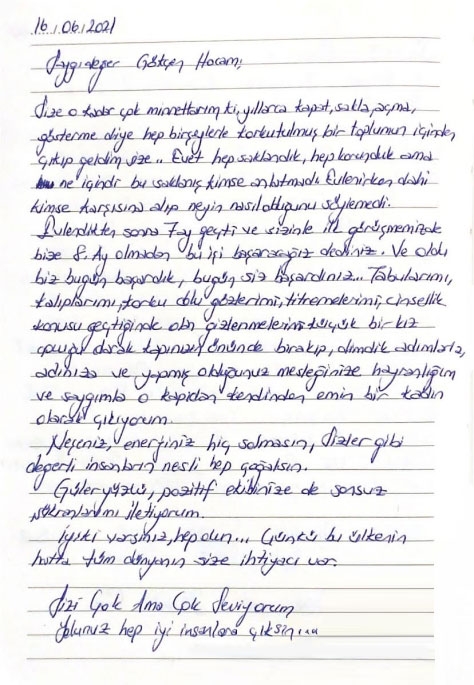 16.06.2021
Saygıdeğer Gökçen Hocam;
Size o kadar çok minnettarım ki, yıllarca kapat, sakla, açma,
gösterme diye hep birşeylerle korkutulmuş bir toplumun içinden
çıkıp geldim size.. Evet hep saklandık, hep korunduk ama
ne içindir bu saklanış kimse anlatmadı. Evlenirken dahi
kimse karşısına alıp neyin nasıl olduğunu söylemedi.
Evlendikten sonra 7 ay geçti ve sizinle ilk görüşmemizde
bize 8. Ay olmadan bu işi başaracağız dediniz. Ve oldu
biz bugün başardık, bugün siz başardınız... Tabularımı,
kalıplarımı, korku dolu gözlerimi, titremelerimi, cinsellik
konusu geçtiğinde olan gizlenmelerimi küçük bir kız
çocuğu olarak kapınızın önünde bırakıp, dimdik adımlarla,
adınıza ve yapmış olduğunuz mesleğinize hayranlığım
ve saygımla o kapıdan kendinden emin bir kadın
olarak çıkıyorum.
Neşeniz, enerjiniz hiç solmasın, Sizler gibi
değerli insanların nesli hep çoğalsın.
Güleryüzlü, pozitif ekibinize de sonsuz
şükranlarımı iletiyorum.
İyiki varsınız, hep olun... Çünkü bu ülkenin
hatta tüm dünyanın size ihtiyacı var.
Sizi Çok Ama Çok Seviyorum
Yolunuz hep iyi insanlara çıksın...